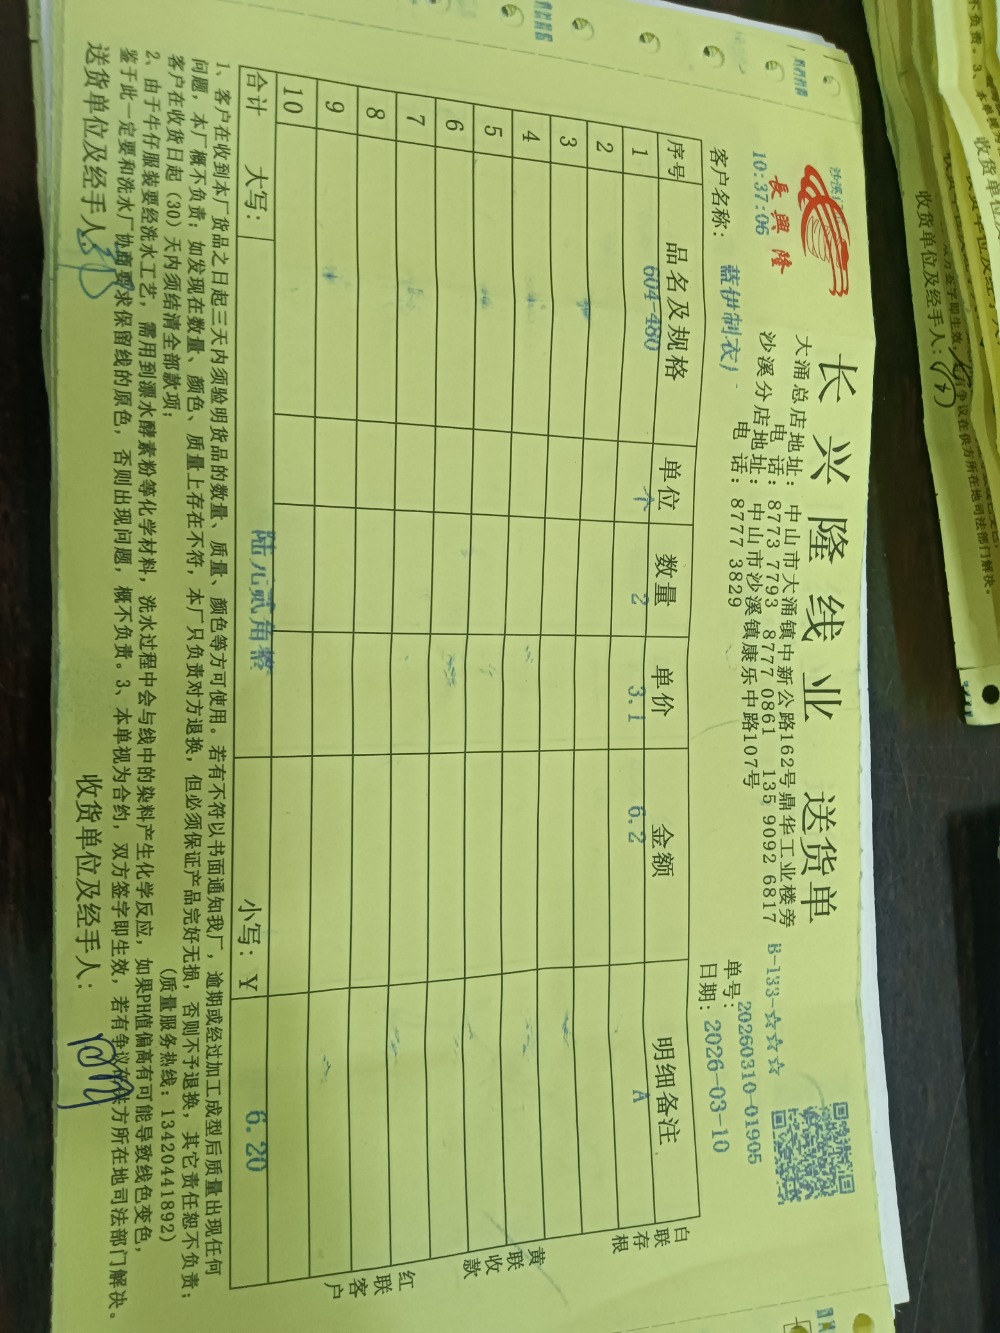 長興隆
长兴隆线业 送货单
大涌总店地址：中山市大涌镇中新公路162号鼎华工业楼旁
电 话：8773 7793 8777 0861 135 9092 6817
沙溪分店地址：中山市沙溪镇康乐中路107号
电 话：8777 3829
B-133-☆☆☆
10:37:06
单号：20260310-01905
客户名称：蓝伊制衣厂
日期：2026-03-10
序号 品名及规格 单位 数量 单价 金额 明细备注
1 604-480 个 2 3.1 6.2 A
2
3
4
5
6
7
8
9
10
合计 大写：陆元贰角整 小写：¥ 6.20
白联存根
黄联收款
红联客户
1、客户在收到本厂货品之日起三天内须验明货品的数量、质量、颜色等方可使用。若有不符以书面通知我厂，逾期或经过加工成型后质量出现任何
问题，本厂概不负责；如发现在数量、颜色、质量上存在不符，本厂只负责对方退换，但必须保证产品完好无损，否则不予退换，其它责任恕不负责；
客户在收货日起（30）天内须结清全部款项； （质量服务热线：13420441892）
2、由于牛仔服装要经洗水工艺，需用到漂水酵素粉等化学材料，洗水过程中会与线中的染料产生化学反应，如果PH值偏高有可能导致线色变色，
鉴于此一定要和洗水厂协商要求保留线的原色，否则出现问题，概不负责。3、本单视为合约，双方签字即生效，若有争议在供方所在地司法部门解决。
送货单位及经手人： 收货单位及经手人：
收货单位及经手人：